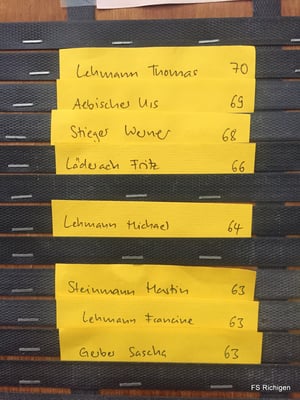 Lehmann Thomas 70
Aebischer Urs 69
Stieger Werner 68
Läderach Fritz 66
Lehmann Michael 64
Steinmann Martin 63
Lehmann Francine 63
Gerber Sascha 63
FS Richigen